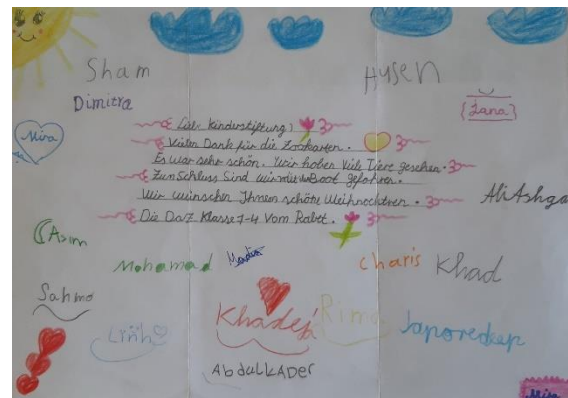 Sham Hysen
Dimitra {Jana}
Mira
Liebe Kinderstiftung!
Vielen Dank für die Zookarten.
Es war sehr schön. Wir haben Viele Tiere gesehen.
Zum Schluss Sind wir mit Boot gefahren.
Wir wünschen Ihnen schöne Weihnachten.
Ali Ashga
Die DaZ Klasse 7-4 Vom Rabet.
Asim
Mohamad charis Khad
Sahmo
Linh Khadej Rima
AbdulkADer